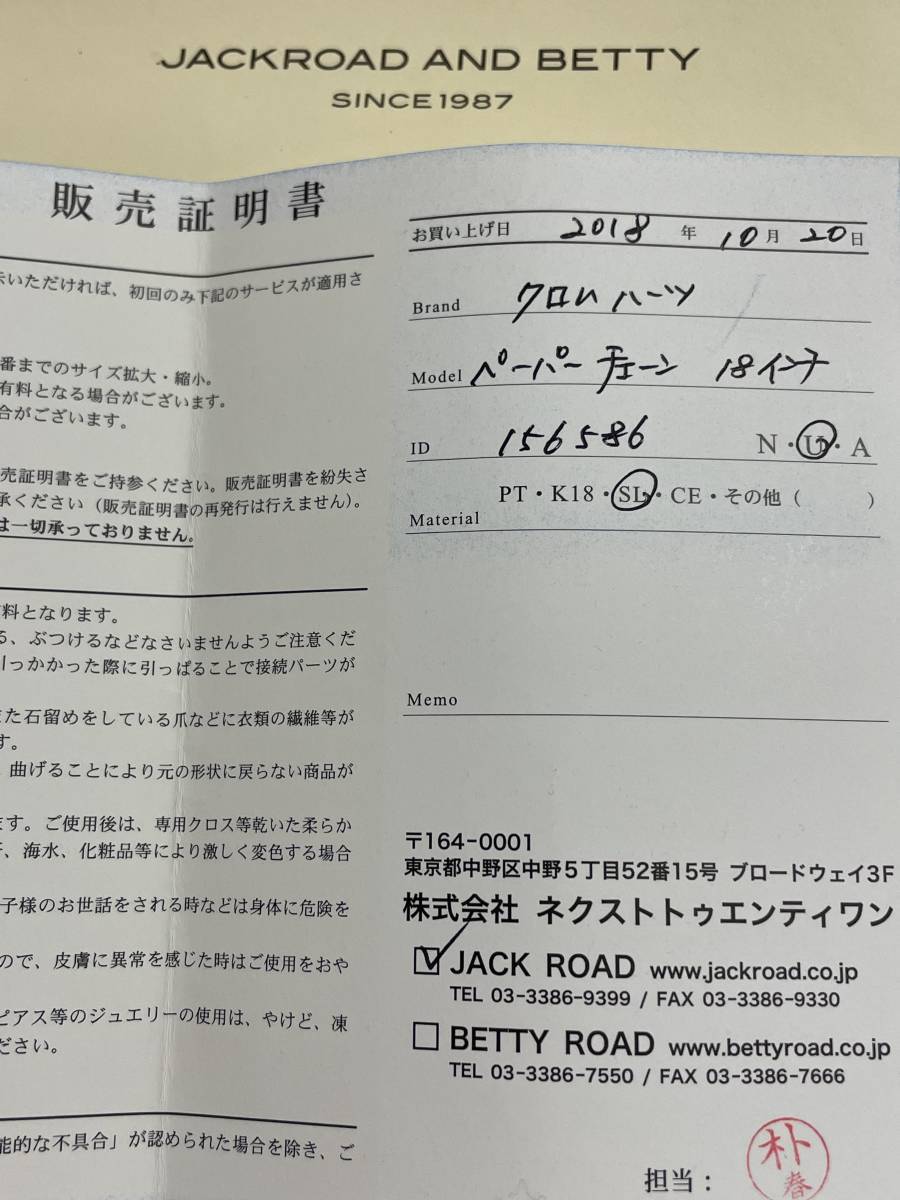 JACKROAD AND BETTY
SINCE1987
販売証明書
いただければ、初回のみ下記のサービスが適用さ
番までのサイズ拡大・縮小。
有料となる場合がございます。
合がございます。
売証明書をご持参ください。販売証明書を紛失さ
承ください（販売証明書の再発行は行えません）。
は一切承っておりません。
料となります。
る、ぶつけるなどなさいませんようご注意くだ
引っかかった際に引っぱることで接続パーツが
た石留めをしている爪などに衣類の繊維等が
す。
曲げることにより元の形状に戻らない商品が
ます。ご使用後は、専用クロス等乾いた柔らか
、海水、化粧品等により激しく変色する場合
子様のお世話をされる時などは身体に危険を
ので、皮膚に異常を感じた時はご使用をおや
ピアス等のジュエリーの使用は、やけど、凍
ださい。
能的な不具合」が認められた場合を除き、ご
お買い上げ日 2018 年 10 月 20 日
Brand クロムハーツ
Model ペーパーチェーン 18インチ
ID 156586 N・U・A
PT・K18・SL・CE・その他（ ）
Material
Memo
〒164-0001
東京都中野区中野5丁目52番15号 ブロードウェイ3F
株式会社 ネクストトゥエンティワン
☑ JACK ROAD www.jackroad.co.jp
TEL 03-3386-9399 / FAX 03-3386-9330
☐ BETTY ROAD www.bettyroad.co.jp
TEL 03-3386-7550 / FAX 03-3386-7666
担当： 朴
春